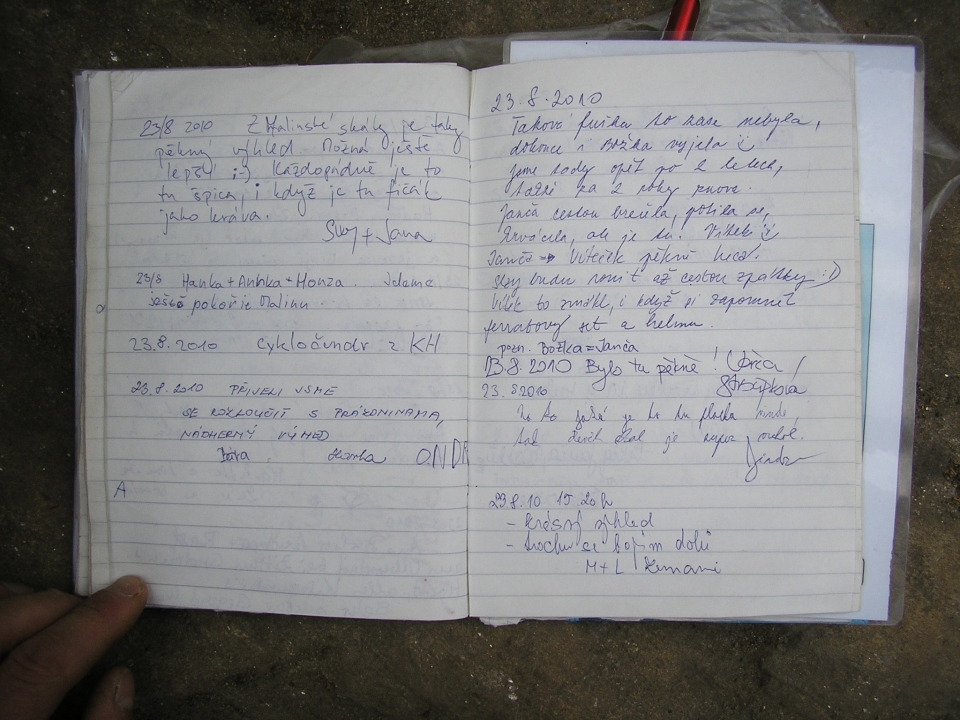 23/8 2010 Z Malinské skály je taky
pěkný výhled. Možná ještě
lepší ;-) Každopádně je to
tu špica, i když je tu fičák
jako kráva.
+ Jana
23/8 Hanka+Aninka+Honza. Jdeme
ještě pokořit Malinu.
23.8.2010 Cykločundr z KH
23.8.2010 PŘIJELI JSME
SE ROZLOUČIT S PRÁZDNINAMA,
NÁDHERNÝ VÝHLED
Bára Hanka ONDR
A
23.8.2010
Taková fuška to zase nebyla,
dokonce i Božka vyjela
jsme tady opět po 2 letech,
za 2 roky znova.
Janča cestou brečela, potila se,
krvácela, ale je tu! Vítek
Janča → Víteček pěkně kecá!
Slzy budu ronit až cestou zpátky :)
Vítek to zmákl, i když si zapomněl
ferratový set a helmu.
pozn. Božka=Janča
23.8.2010 Bylo tu pěkně!
23.8.2010
je to tu
tak je
23.8.10 15.20h
- krásný výhled
- trochu se bojím dolů
M+L Zemani